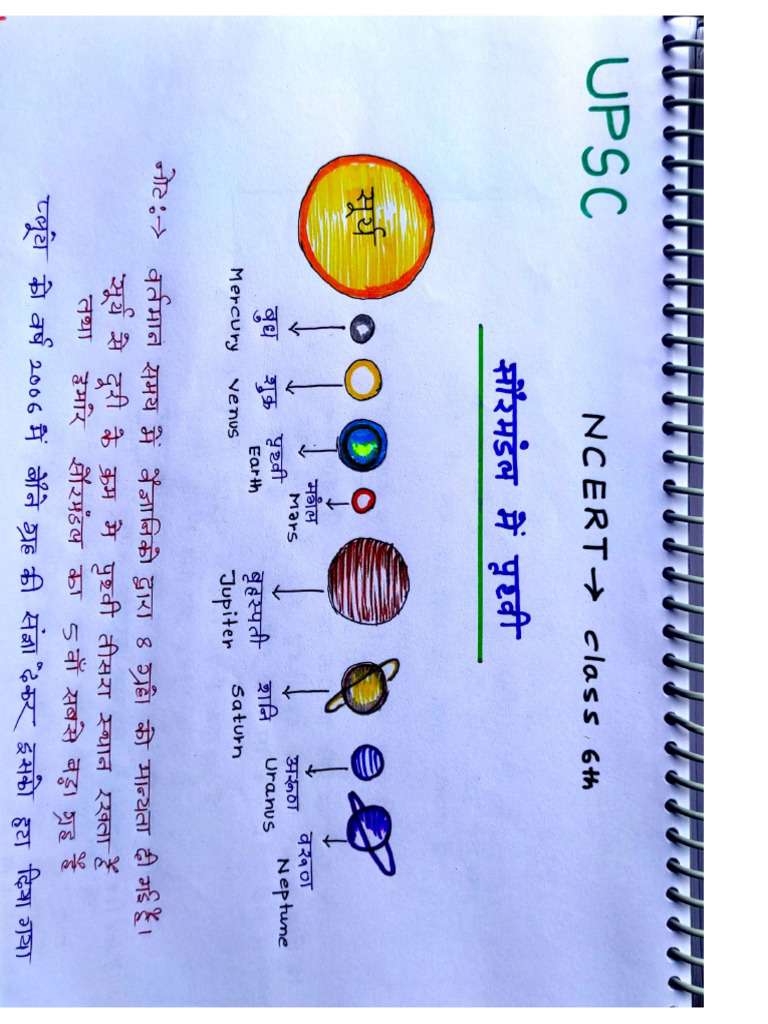 UPSC
NCERT → class 6th
सौरमंडल में पृथ्वी
सूर्य
बुध
Mercury
शुक्र
Venus
पृथ्वी
Earth
मंगल
Mars
बृहस्पती
Jupiter
शनि
Saturn
अरूण
Uranus
वरूण
Neptune
नोट :→ वर्तमान समय में वैज्ञानिकों द्वारा 8 ग्रहों को मान्यता दी गई है।
सूर्य से दूरी के क्रम में पृथ्वी तीसरा स्थान रखता है
तथा हमारे सौरमंडल का 5 वाँ सबसे बड़ा ग्रह है
प्लूटो को वर्ष 2006 में बौने ग्रह की संज्ञा देकर इसको हटा दिया गया